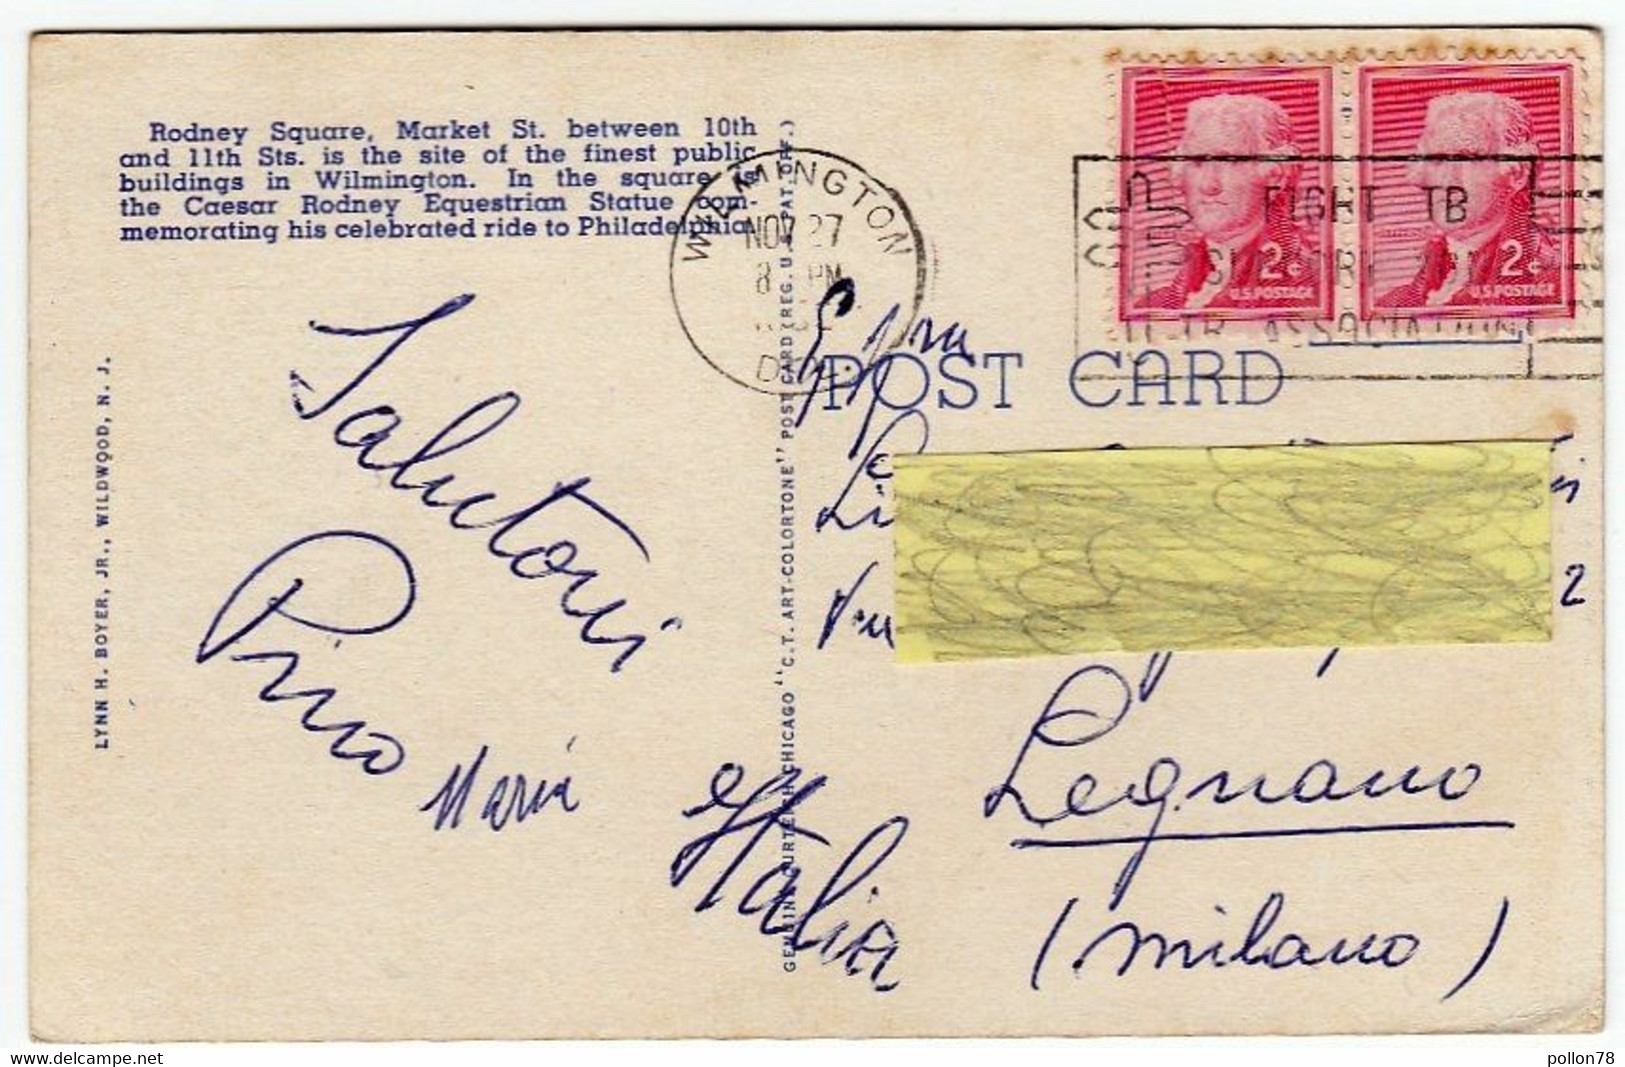 Rodney Square, Market St. between 10th
and 11th Sts. is the site of the finest public
buildings in Wilmington. In the square is
the Caesar Rodney Equestrian Statue com-
memorating his celebrated ride to Philadelphia.
LYNN H. BOYER, JR., WILDWOOD, N. J.
Salutoni
Pino
Maria
GENUINE CURTEICH-CHICAGO "C. T. ART-COLORTONE" POST CARD (REG. U. S. PAT. OFF.)
WILMINGTON
NOV 27
8 PM
DEL.
FIGHT TB
SUPPORT YOUR
TB ASSOCIATION
2¢
U.S. POSTAGE
2¢
U.S. POSTAGE
POST CARD
Legnano
(Milano)
Italia
www.delcampe.net
pollon78